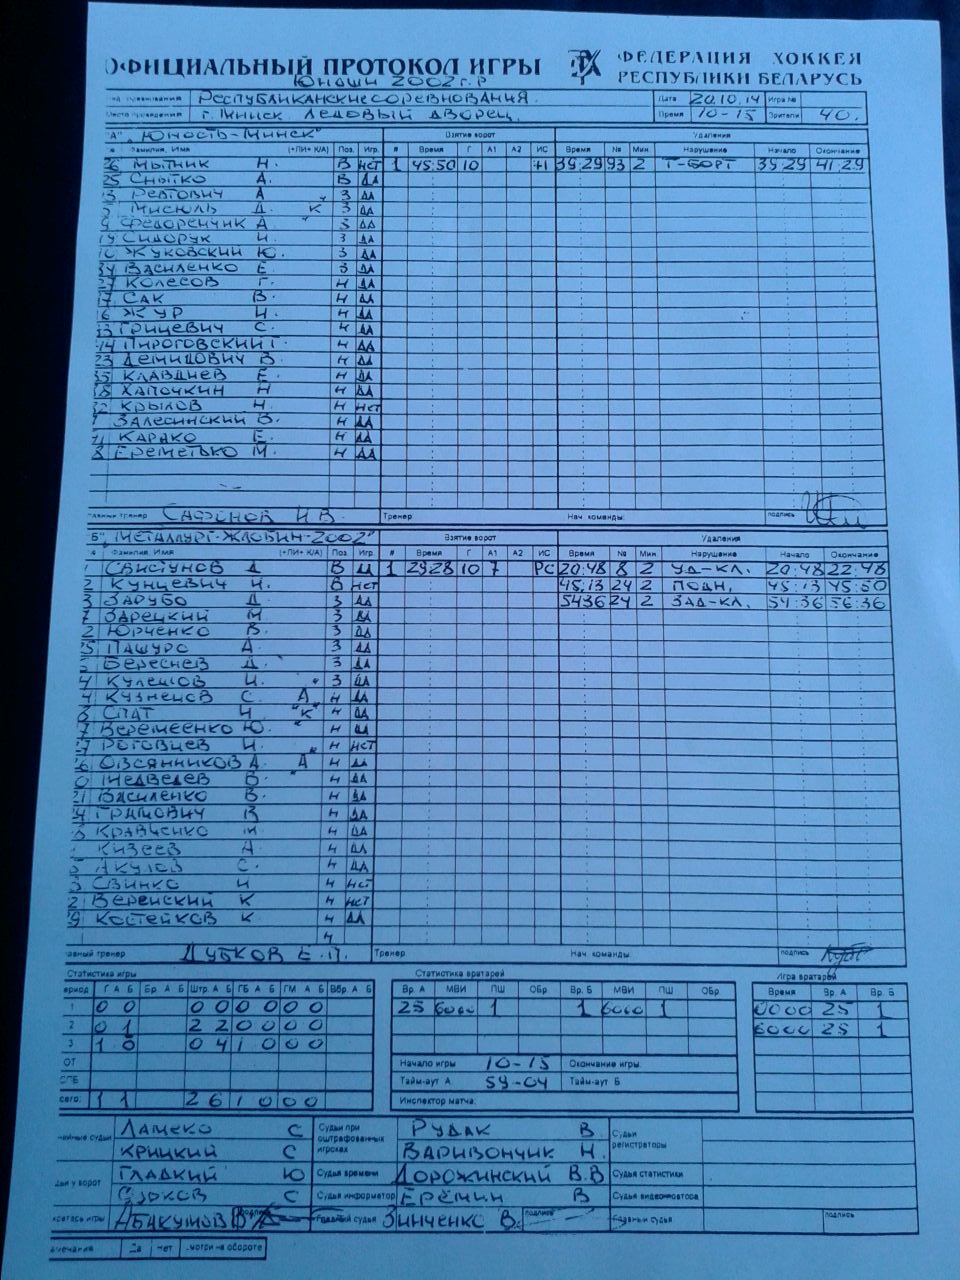 ОФИЦИАЛЬНЫЙ ПРОТОКОЛ ИГРЫ
ФЕДЕРАЦИЯ ХОККЕЯ
РЕСПУБЛИКИ БЕЛАРУСЬ
ЮНОШИ 2002 г.р
РЕСПУБЛИКАНСКИЕ СОРЕВНОВАНИЯ. Дата 20.10.14 Игра №
Место проведения г. МИНСК ЛЕДОВЫЙ ДВОРЕЦ. Время 10-15 Зрители 40.
"А" „ЮНОСТЬ-МИНСК" Взятие ворот Удаления
Фамилия, Имя (+ПИ+ К/А) Поз. Игр. # Время Г А1 А2 ИС Время № Мин Нарушение Начало Окончание
МЫТНИК Н. В НЕТ 1 45:50 10 +1 39:29 93 2 Т-БОРТ 39:29 41:29
25 СНЫТКО А. В ДА
РЕДТОВИЧ А З ДА
МИСЮЛЬ Д. К З ДА
9 ФЕДОРЕНЧИК А З ДА
19 СИДОРУК И. З ДА
ЖУКОВСКИЙ Ю. З ДА
ВАСИЛЕНКО Е. З ДА
27 КОЛЕСОВ Г. Н ДА
17 САК В. Н ДА
ЖУР И. Н ДА
ГРИЦЕВИЧ С. Н ДА
ПИРОГОВСКИЙ Г. Н ДА
23 ДЕМИДОВИЧ В. Н ДА
КЛАВДИЕВ Е. Н ДА
ХАПОЧКИН Н Н ДА
КРЫЛОВ Н. Н НЕТ
ЗАЛЕСИНСКИЙ В. Н ДА
КАРАКО Е. Н ДА
8 ЕРЕМЕТЬКО М. Н ДА
Главный тренер САФОНОВ И.В. Тренер Нач. команды: подпись
"Б" „МЕТАЛЛУРГ-ЖЛОБИН-2002" Взятие ворот Удаления
Фамилия, Имя (+ПИ+ К/А) Поз. Игр. # Время Г А1 А2 ИС Время № Мин. Нарушение Начало Окончание
СВИСТУНОВ Д В 1 29:28 10 7 РС 20:48 8 2 УД-КЛ. 20:48 22:48
КУНЦЕВИЧ И. В НЕТ 45:13 24 2 ПОДН. 45:13 45:50
ЗАРУБО Д. З ДА 54:36 24 2 ЗАД-КЛ. 54:36 56:36
ЗАРЕЦКИЙ М З ДА
ЮРЧЕНКО В. З ДА
ПАШУРО А. З ДА
БЕРЕСНЕВ Д. З ДА
КУЛЕШОВ И. З ДА
КУЗНЕЦОВ С. А Н ДА
СПАТ И "К" Н ДА
ВЕРЕМЕЕНКО Ю. Н ДА
РОГОВЦЕВ И. Н НЕТ
ОВСЯННИКОВ А. А Н ДА
МЕДВЕДЕВ В. Н ДА
21 ВАСИЛЕНКО В. Н ДА
ГРАМОВИЧ В Н ДА
КРАВЦЕНКО М Н ДА
КИЗЕЕВ А. Н ДА
АКУЛОВ С. Н ДА
СВИНКО И Н НЕТ
ВЕРЕЙСКИЙ К Н НЕТ
КОСТЕЙКОВ К Н ДА
Н
Главный тренер ДУБКОВ Е.П. Тренер Нач. команды: подпись
Статистика игры Статистика вратарей Игра вратарей
период Г А Б Бр. А Б Штр. А Б ГБ А Б ГМ А Б Вбр. А Б Вр. А МВИ ПШ ОБр. Вр. Б МВИ ПШ ОБр Время Вр. А Вр. Б
1 0 0 0 0 0 0 0 0 25 6000 1 1 6000 1 0000 25 1
2 0 1 2 2 0 0 0 0 6000 25 1
3 1 0 0 4 1 0 0 0
ОТ Начало игры 10-15 Окончание игры
Тайм-аут А 59-04 Тайм-аут Б
всего: 1 1 2 6 1 0 0 0 Инспектор матча:
ЛАМЕКО С Судьи при оштрафованных игроках РУДАК В. Судьи регистраторы
КРИЦКИЙ С ВАРИВОНЧИК Н.
ГЛАДКИЙ Ю Судья времени ДОРОЖИНСКИЙ В.В Судья статистики
СУРКОВ С Судья информатор ЕРЁМИН В Судья видеоповтора
АБАКУМОВ подпись Главный судья ЗИНЧЕНКО В. подпись Главный судья подпись
Да нет смотри на обороте